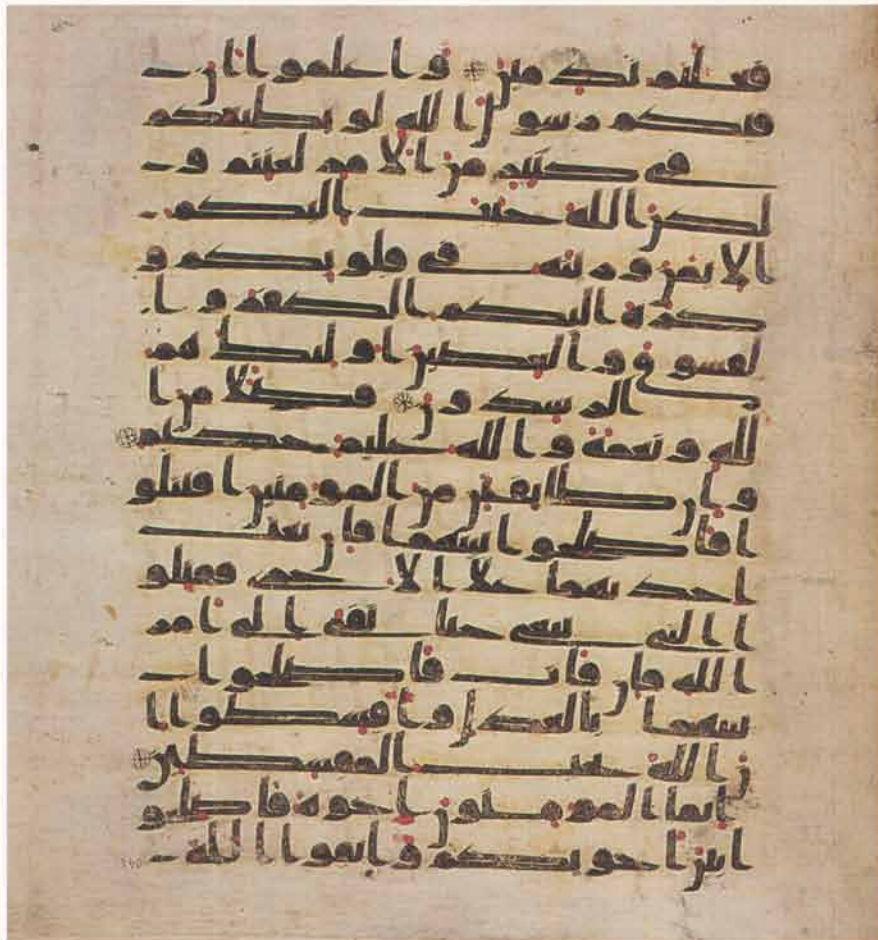 فعلتم ندمين واعلموا ان
فيكم رسول الله لو يطيعكم
في كثير من الامر لعنتم و
لكن الله حبب اليكم
الايمن وزينه في قلوبكم و
كره اليكم الكفر وا
لفسوق والعصين اوليك هم
الرشدون فضلا من ا
لله ونعمة والله عليم حكيم
وان طايفتين من المومنين اقتتلو
ا فاصلحوا بينهما فان بغت
احديهما على الاخرى فقتلو
ا التي تبغي حتى تفي الى امر
الله فان فات فاصلحوا
بينهما بالعدل واقسطوا ا
ن الله يحب المقسطين
انما المومنون اخوة فاصلحو
ا بين اخويكم واتقوا الله